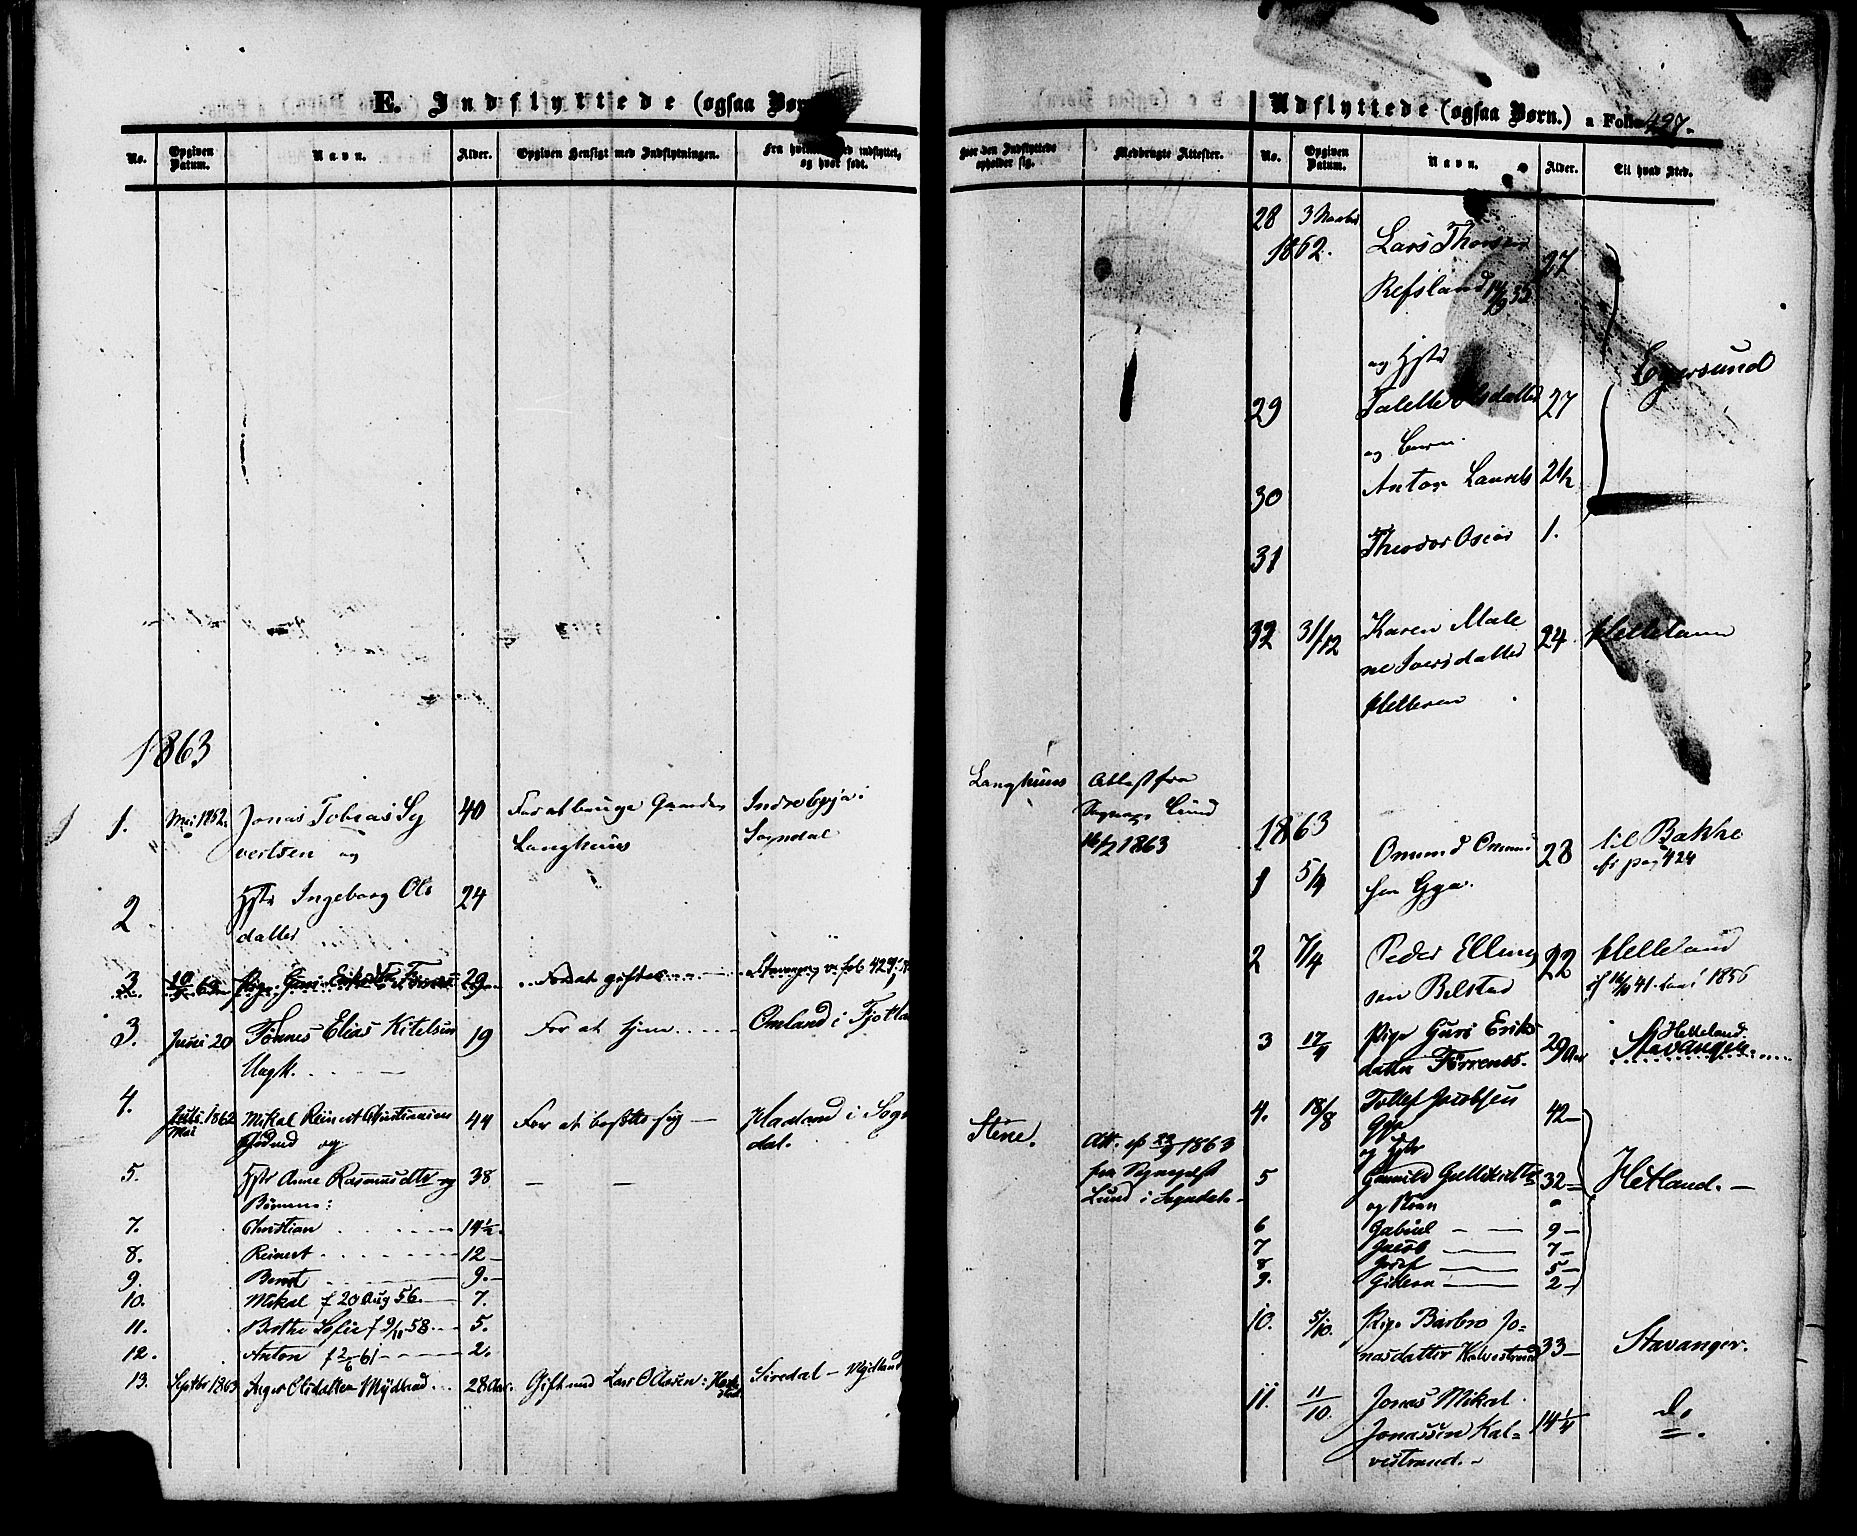 E. Indflyttede (ogsaa Børn
No.
Opgiven Datum.
Navn.
Alder.
Opgiven Hensigt med Indflytningen.
Fra hvilket Sted indflyttet, og hvor født.
1863
1. Mai 1862. Jonas Tobias Sy 40 For at bruge Gaarden Indre Egja i
vertsen og Langhuus Sogndal
2 Hstr Ingeborg Ols 24
datter
3 10 63 Pige Guri Eriksdtr Førrenes 29 For at giftes Stavanger fol. 429
3. Juni 20 Tønnes Elias Kitelsen 19 For at tjene Omland i Fjotla
Ungk.
4. Juli 1862 Mikal Reinert Christiansen 44 For at bosætte sig — Haaland i Sogn
Mai og dal.
5. Hstr Anne Rasmusdtr og 38 — —
Børnene:
7. Christian 14½
8. Reinert 12
9. Bernt 9.
10. Mikal f 20 Aug 56. 7.
11. Berthe Sofie f 9/11 58 5.
12. Anton f 2/6 61 2.
13. Septbr 1863 Inger Olsdatter Mydland 28 Aar. Gift med Lars Olsen Siredal — Mydland
Udflyttede (ogsaa Børn.) a Folio 427.
Hvor den Indflyttede opholder sig.
Medbragte Attester.
No.
Opgiven Datum.
Navn.
Alder.
Til hvad Sted.
28 3 Novbr
1862. Lars Thorsen 27
Refsland 14/9 35
og Hstr
29 Talette Olsdatter 27 Egersund
og Børn
30 Anton Laurits 2½
31 Theodor Oscar 1.
32 31/12 Karen Male 24 Helleland
ne Iversdatter
Helleren
Langhuus Attest fra
Sognepr. Lund
16/2 1863
1863
1 5/4 Omund Omund 28 til Bakke
sen Gya. pag 424
2 7/4 Peder Elling 22 Helleland
sen Belstad f 16/10 41. 1856
3 17/4 Pige Guri Eriks 29 Aar Helleland
datter Førrenes. Stavanger
4. 18/8 Tollef Jacobsen 42 —
Gya
og Hstr
5 Gunild Gullıksdtr 32 — Hetland. —
og Børn
6 Gabriel 9 —
7 Jacob 7 —
8 Josef 5 —
9. Gideon 2 —
Stene. Att. af 22/9 1863
fra Sognepræst
Lund i Sogndal. —
10. 5/10. Pige Barbro Jo= 33 — Stavanger.
nasdatter Kalvestrand
11. 11/10. Jonas Mikal 14¼ do
Jonassen Kal=
vestrand. —